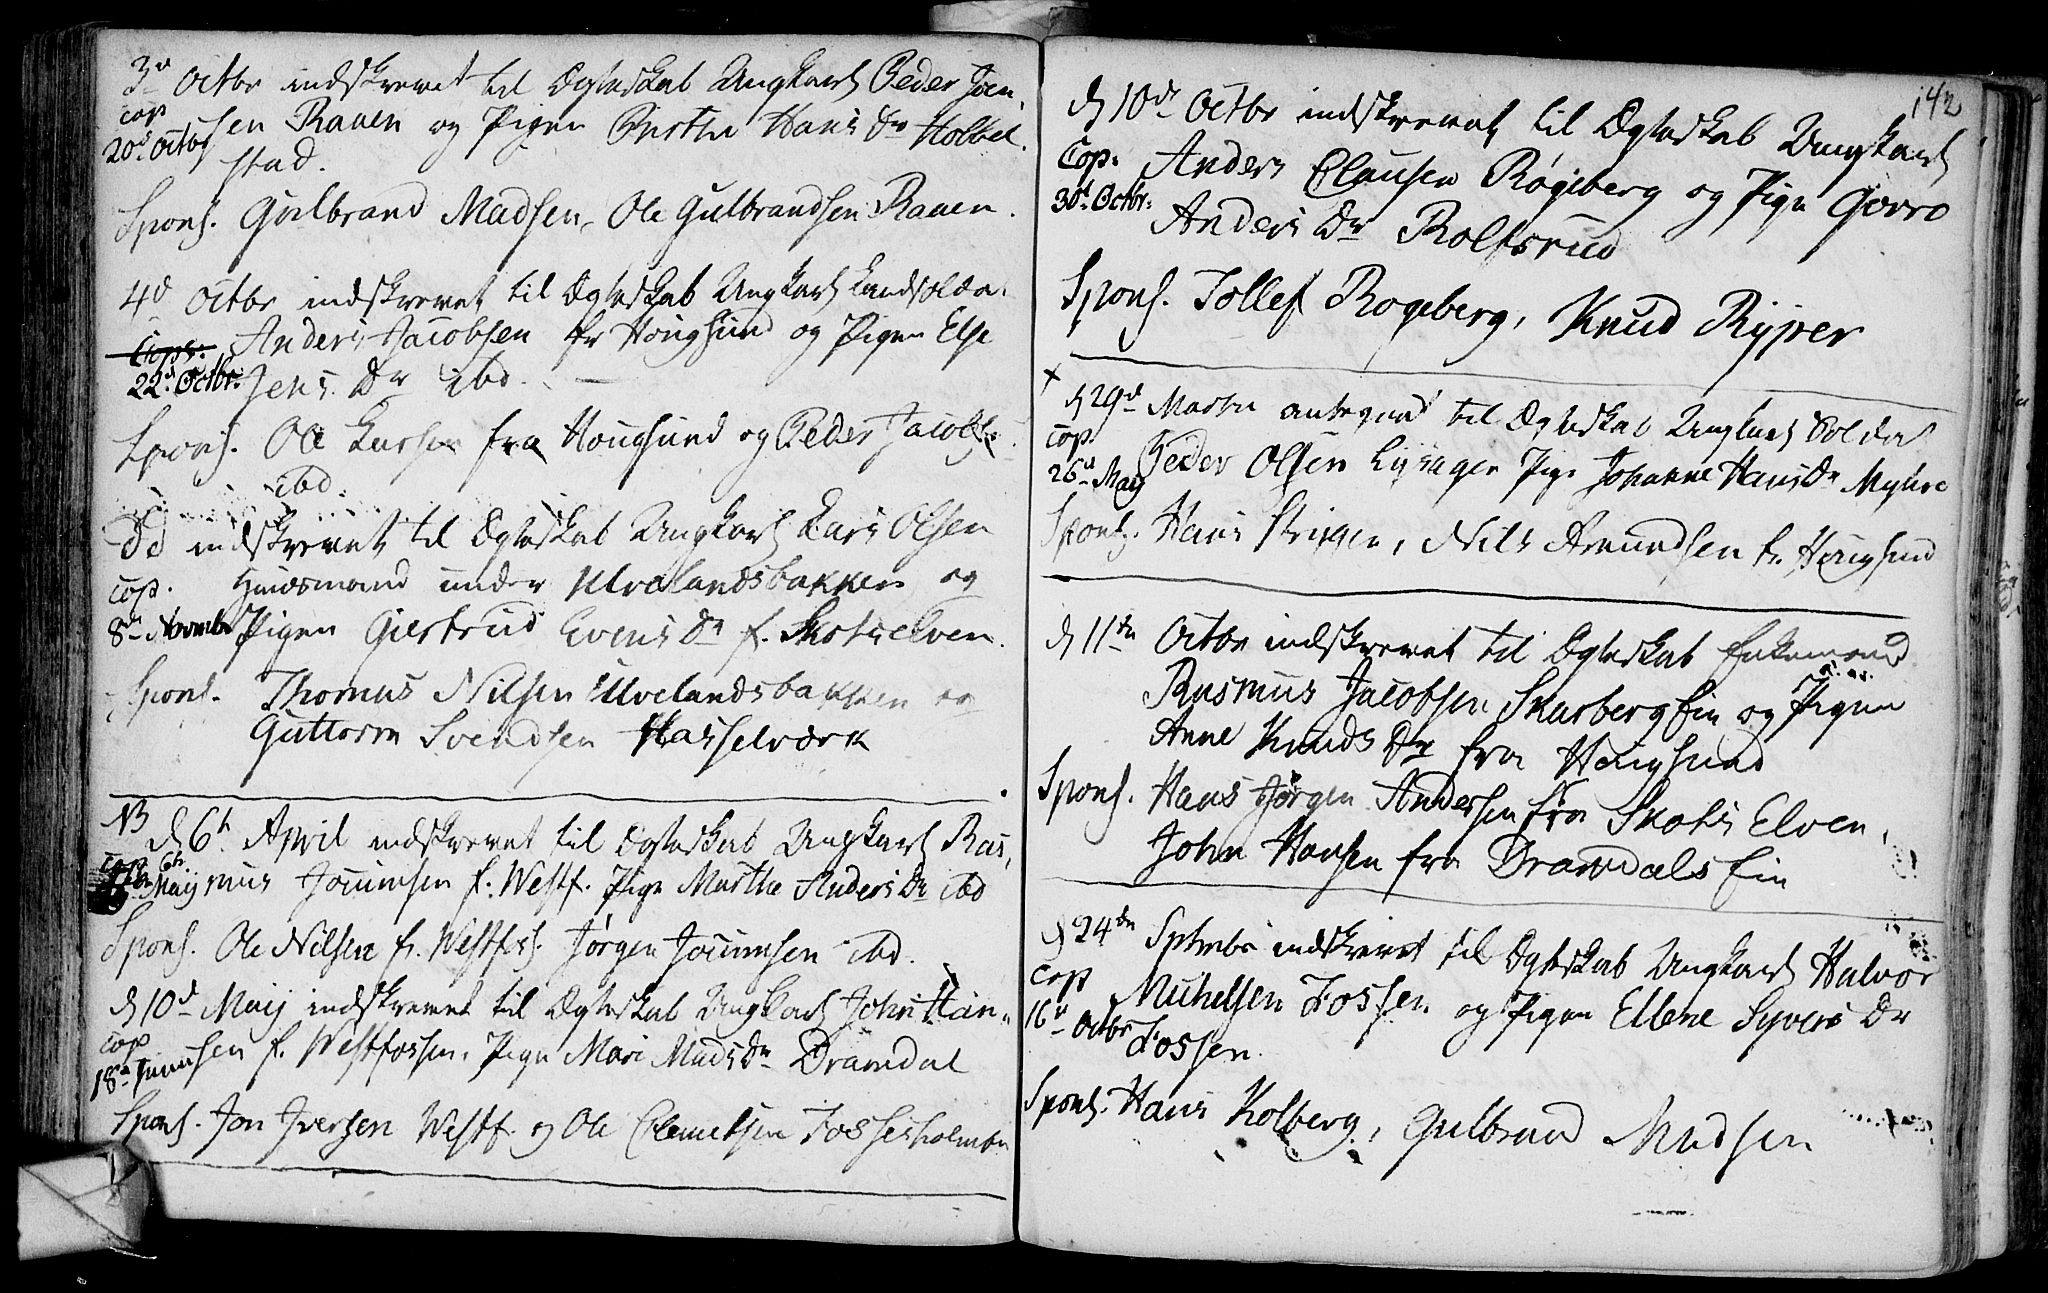 3d Octbr indskrevet til Ægteskab Ungkarl Peder Joen
cop sen Raaen og Pigen Birthe Hans Dr Hobbel
20d Octbr stad.
Spons. Gulbrand Madsen, Ole Gulbrandsen Raaen.
4d Octbr indskrevet til Ægteskab Ungkarl Landsoldat
Cops: Anders Jacobsen fr Hougsund og Pigen Else
22d Octbr: Jens Dr ibd.
Spons. Ole Larsen fra Hougsund og Peder Jacobsen
ibd.
Dd indskrevet til Ægteskab Ungkarl Lars Olsen
cop. Huusmand under Ulvelandsbakken og
8d Novembr Pigen Giertrud Evens Dr f. Skotselven.
Spons. Thomas Nilsen Ulvelandsbakken og
Guttorm Svendsen Hasselværk
NB
d 6t April indskrevet til Ægteskab Ungkarl Ras,
cop 6th Maij mus Jouumsen f. Westf. Pige Marthe Anders Dr ibd
Spons. Ole Nilsen fr. Westfos. Jørgen Jouumsen ibd.
d 10d Maij indskrevet til Ægteskab Ungkarl John Han-
cop sen f. Westfossen. Pige Mari Mads Dr Dramdal
18d Juni
Spons. Jon Iversen Westf. og Ole Clemetsen Fossesholm
142
d 10de Octbr indskrevet til Ægteskab Ungkarl
Cop: Anders Clausen Røgeberg og Pige Goroe
30d Octbr: Anders Dr Rolfsrud
Spons. Tollef Rogeberg, Knud Ryper
+
d 29d Martii antegnet til Ægteskab Ungkarl Soldat
cop. Peder Olsen Lysager Pige Johanne Hans Dr Myhre
26d Maij
Spons. Hans Striger, Nils Amundsen fr. Hougsund
d 11te Octbr indskrevet til Ægteskab Enkemand
Rasmus Jacobsen Skarberg Eie og Pigen
Anne Knuds Dr fra Hougsund
Spons. Hans Jørgen Andersen fra Skots Elven,
John Hansen fra Dramdals Eie
d 24de Septembr indskrevet til Ægteskab Ungkarl Halvor
cop Michelsen Fossen og Pigen Ellene Syvers Dr
16d Octbr Fossen.
Spons. Hans Kolberg, Gulbrand Madsen